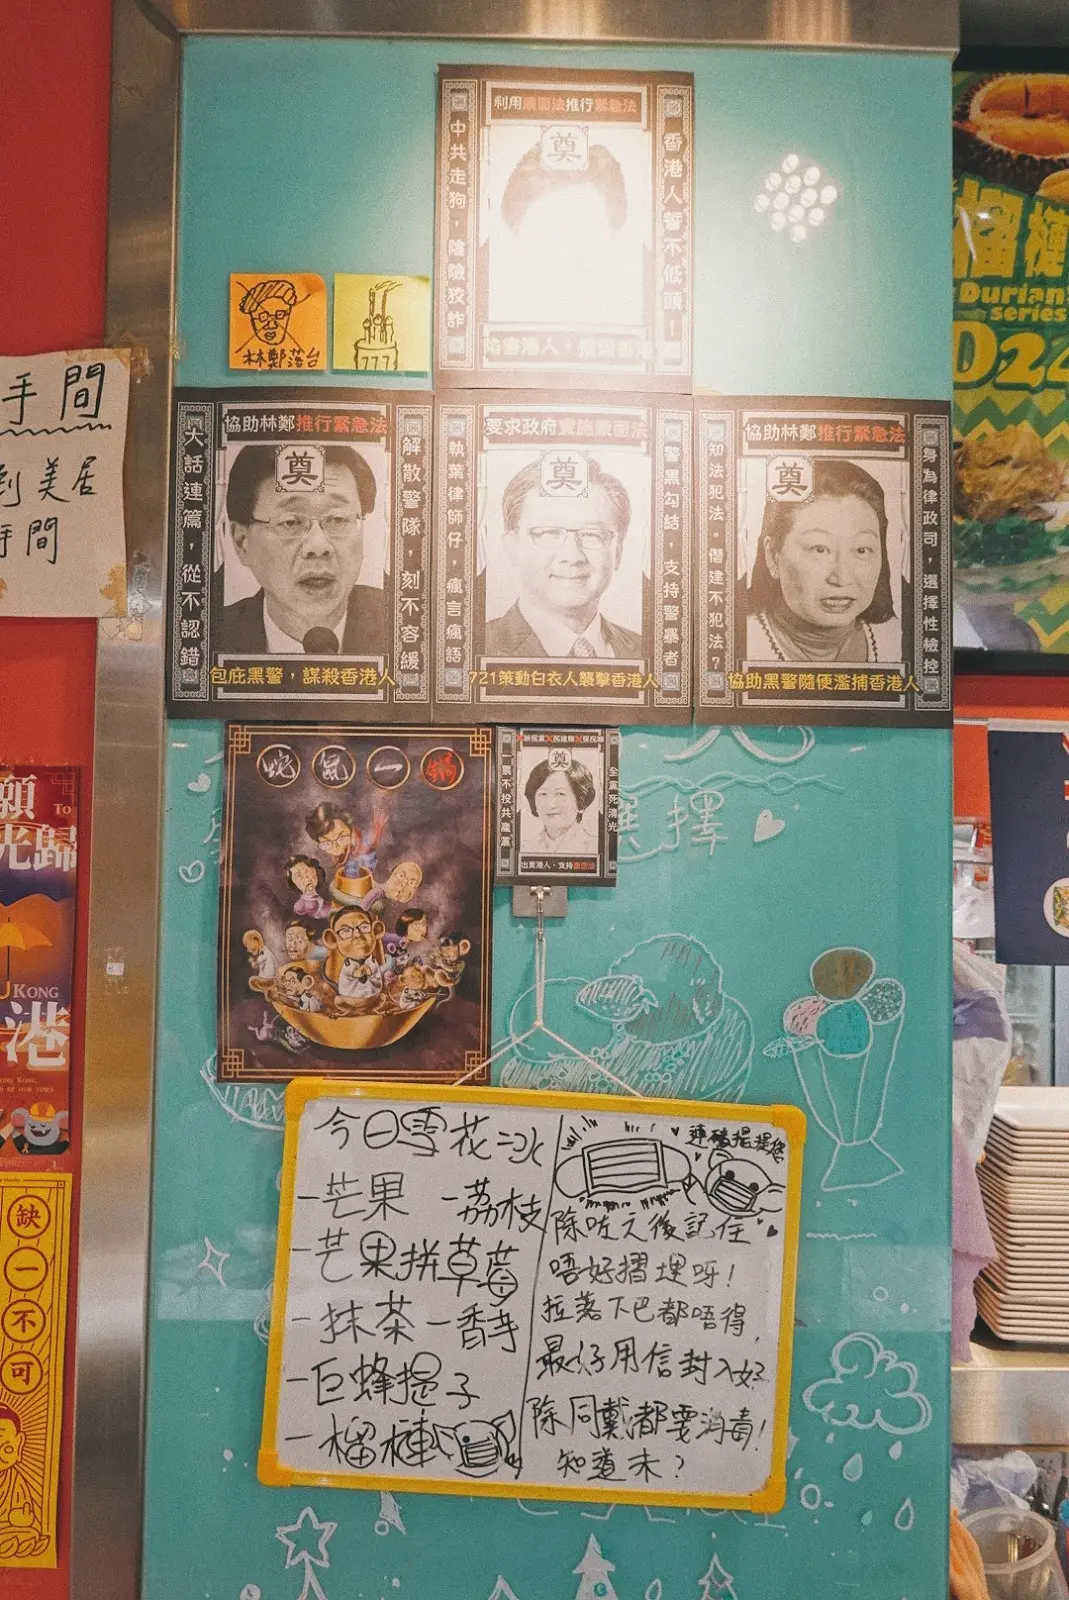 利用蒙面法推行緊急法
奠
中共走狗,陰險狡詐
香港人誓不低頭!
陷害港人,
林鄭落台
777
手間
到美居
手間
協助林鄭推行緊急法
奠
大話連篇,從不認錯
解散警隊,刻不容緩
包庇黑警,謀殺香港人
要求政府實施蒙面法
奠
執葉律師仔,瘋言瘋語
警黑勾結,支持警暴者
721策動白衣人襲擊香港人
協助林鄭推行緊急法
奠
知法犯法。僭建不犯法?
身為律政司,選擇性檢控
協助黑警隨便濫捕香港人
榴槤
Durian
series
D24
蛇鼠一鍋
新民黨X民建聯X
奠
票不投共產黨
全黨死清光
出賣港人,支持
選擇
願
To
光歸
KONG
港
缺一不可
今日雪花冰
-芒果 -荔枝
-芒果拼草莓
-抹茶-香芋
-巨蜂提子
-榴槤
連豬提提您
除咗之後記住
唔好摺埋呀!
拉落下巴都唔得,
最好用信封入好
除同戴都要消毒!
知道未?